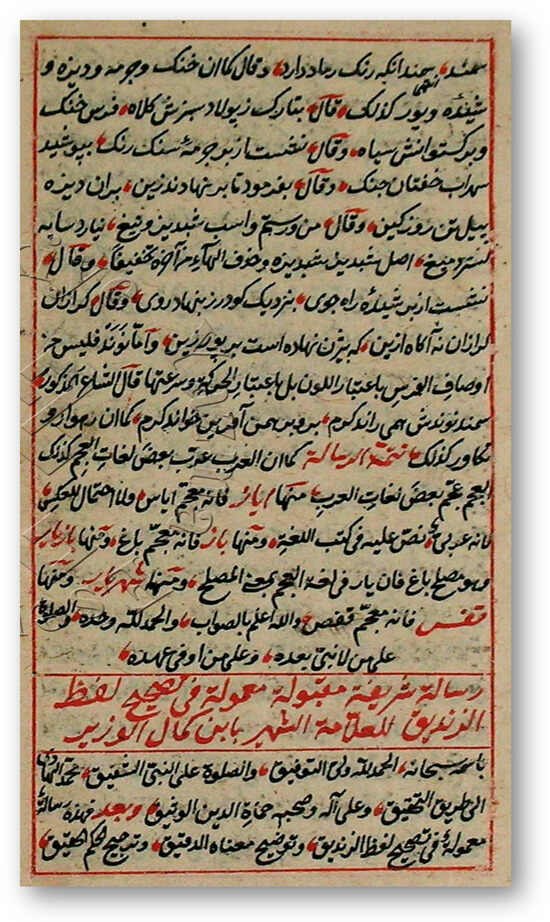 سمند سمند انکه رنک رماد دارد وقال کما ان خنک وجرمه و دیزه و
شیده وبور کذلک قال بتارک ز پولاد بر سرش کلاه فرس خنک
وبرکستوانش سیاه وقال نشست از بر جرمهٔ سنک رنک بپوشید
سهراب خفتان جنک وقال بفرمود تا برنهادند زین بران دیزه
پیل تن روز کین وقال من ورستم واسب شبدیز وتیغ نیارد سایه
کسترد میغ اصل شبدیز شبدیزه وحذف الهآء من آخره تخفیفا وقال
نشست از بر شیدهٔ راه جوی بنزدیک کودرز بنهاد روی وقال کرازان
کرازان نه آکاه ازین که بیژن نهاده است بر بور زین واما نوند فلیس من
اوصاف الفرس باعتبار اللون بل باعتبار الحرکة وسرعتها قال الشاعر المذکور
سمند نوندش همی راند کرم برو بر همی آفرین خواند کرم کما ان رهوار و
تکاور کذلک تتمة الرسالة کما ان العرب عربت بعض لغات العجم کذلک
العجم عجم بعض لغات العرب منها ایاز فانه معجم ایاس ولا احتمال للعکس
فانه عربی نص علیه فی کتب اللغة ومنها باز فانه معجم باغ ومنها بازیار
وهو مصلح باغ فان یار فی لغة العجم بمعنی المصلح ومنها شهریار ومنها
قفس فانه معجم قفص والله اعلم بالصواب والحمد لله وحده والصلوة
علی من لا نبی بعده وعلی من اوفی عهده
رسالة شریفة مقبولة معمولة فی تصحیح لفظ
الزندیق للعلامة الشهیر بابن کمال الوزیر
باسمه سبحانه الحمد لله ولی التوفیق والصلوة علی النبی الشفیق محمد الهادی
الی طریق التحقیق وعلی آله وصحبه حماة الدین الوثیق وبعد فهذه رسالة
معمولة فی تصحیح لفظ الزندیق وتوضیح معناه الدقیق وترجیح الحکم الحقیق